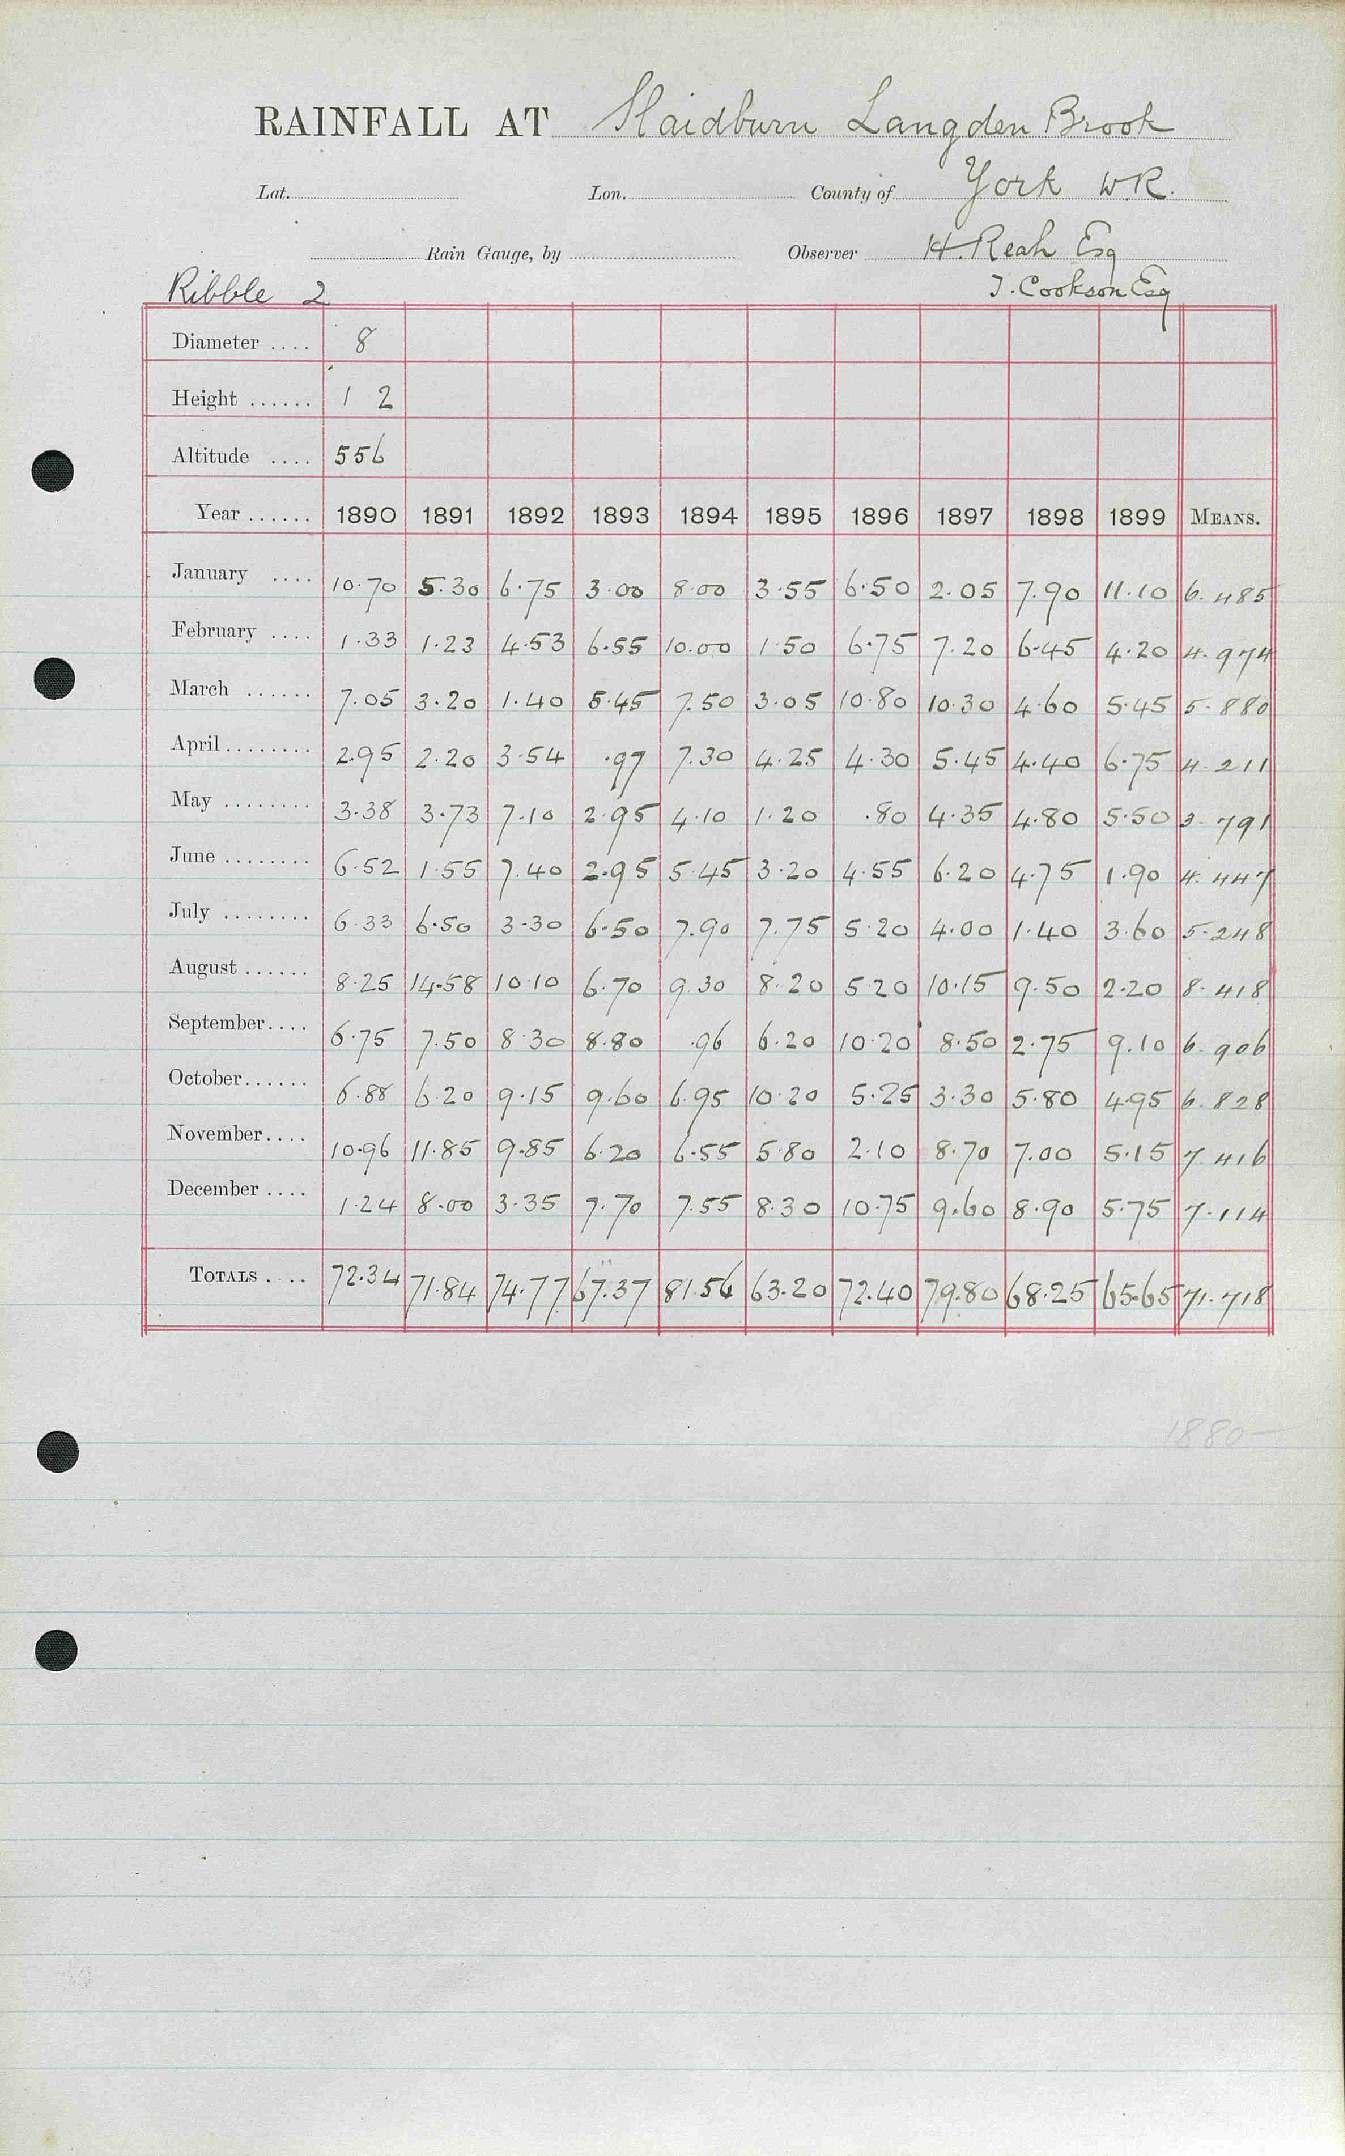 RAINFALL AT Slaidburn Langden Brook
Lat. Lon. County of York W.R.
Rain Gauge, by Observer H. Reah Esq
Ribble 2 J. Cookson Esq
Diameter .... 8
Height ...... 1 2
Altitude .... 556
Year ...... 1890 1891 1892 1893 1894 1895 1896 1897 1898 1899 MEANS.
January .... 10.70 5.30 6.75 3.00 8.00 3.55 6.50 2.05 7.90 11.10 6.485
February .... 1.33 1.23 4.53 6.55 10.00 1.50 6.75 7.20 6.45 4.20 4.974
March ...... 7.05 3.20 1.40 5.45 7.50 3.05 10.80 10.30 4.60 5.45 5.880
April ........ 2.95 2.20 3.54 .97 7.30 4.25 4.30 5.45 4.40 6.75 4.211
May ........ 3.38 3.73 7.10 2.95 4.10 1.20 .80 4.35 4.80 5.50 3.791
June ........ 6.52 1.55 7.40 2.95 5.45 3.20 4.55 6.20 4.75 1.90 4.447
July ........ 6.33 6.50 3.30 6.50 7.90 7.75 5.20 4.00 1.40 3.60 5.248
August ...... 8.25 14.58 10.10 6.70 9.30 8.20 5.20 10.15 9.50 2.20 8.418
September.... 6.75 7.50 8.30 8.80 .96 6.20 10.20 8.50 2.75 9.10 6.906
October...... 6.88 6.20 9.15 9.60 6.95 10.20 5.25 3.30 5.80 4.95 6.828
November.... 10.96 11.85 9.85 6.20 6.55 5.80 2.10 8.70 7.00 5.15 7.416
December .... 1.24 8.00 3.35 7.70 7.55 8.30 10.75 9.60 8.90 5.75 7.114
TOTALS .... 72.34 71.84 74.77 67.37 81.56 63.20 72.40 79.80 68.25 65.65 71.718
1880-